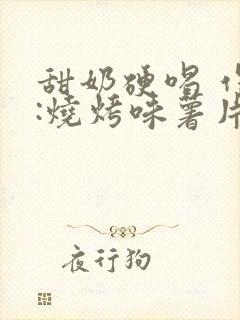 甜奶硬唱
:燒烤味薯片
夜行狗